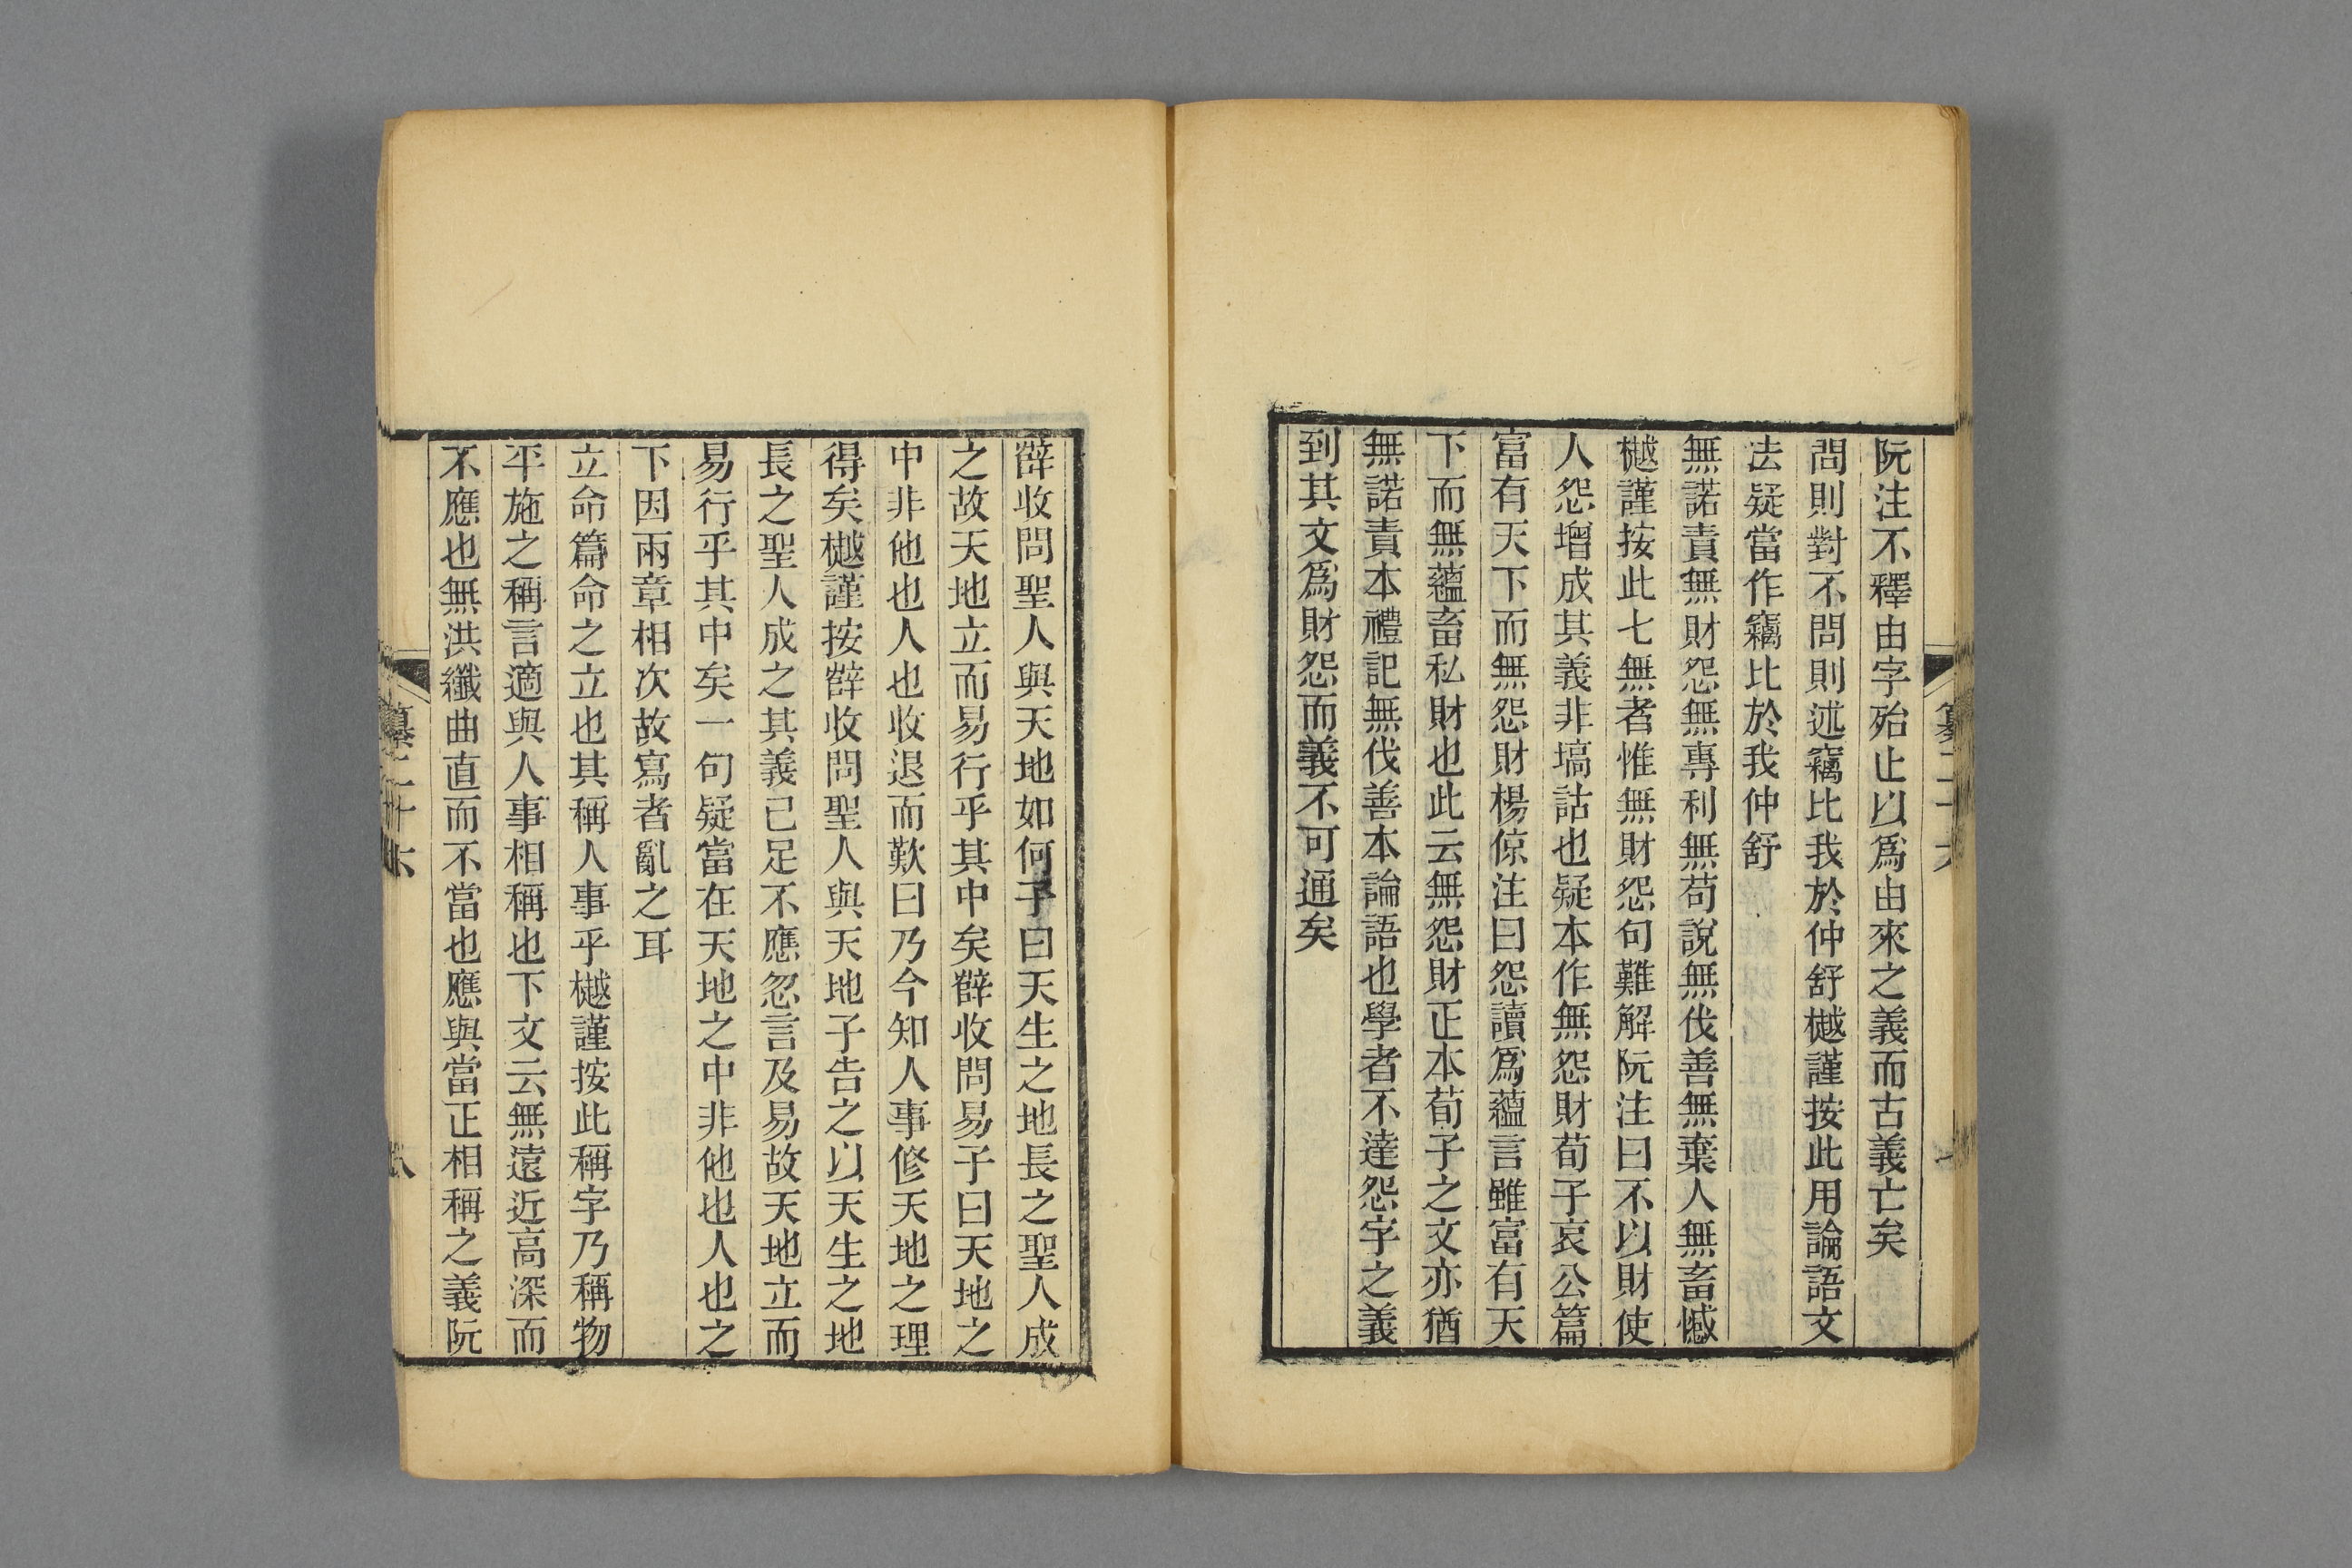 阮注不釋由字殆止以爲由來之義而古義亡矣
問則對不問則述竊比我於仲舒樾謹按此用論語文
法疑當作竊比於我仲舒
無諾責無財怨無專利無苟說無伐善無棄人無畜憾
樾謹按此七無者惟無財怨句難解阮注曰不以財使
人怨增成其義非塙詁也疑本作無怨財荀子哀公篇
富有天下而無怨財楊倞注曰怨讀爲蘊言雖富有天
下而無蘊畜私財也此云無怨財正本荀子之文亦猶
無諾責本禮記無伐善本論語也學者不達怨字之義
到其文爲財怨而義不可通矣
薛收問聖人與天地如何子曰天生之地長之聖人成
之故天地立而易行乎其中矣薛收問易子曰天地之
中非他也人也收退而歎曰乃今知人事修天地之理
得矣樾謹按薛收問聖人與天地子告之以天生之地
長之聖人成之其義已足不應忽言及易故天地立而
易行乎其中矣一句疑當在天地之中非他也人也之
下因兩章相次故寫者亂之耳
立命篇命之立也其稱人事乎樾謹按此稱字乃稱物
平施之稱言適與人事相稱也下文云無遠近高深而
不應也無洪纖曲直而不當也應與當正相稱之義阮
纂二十六
八